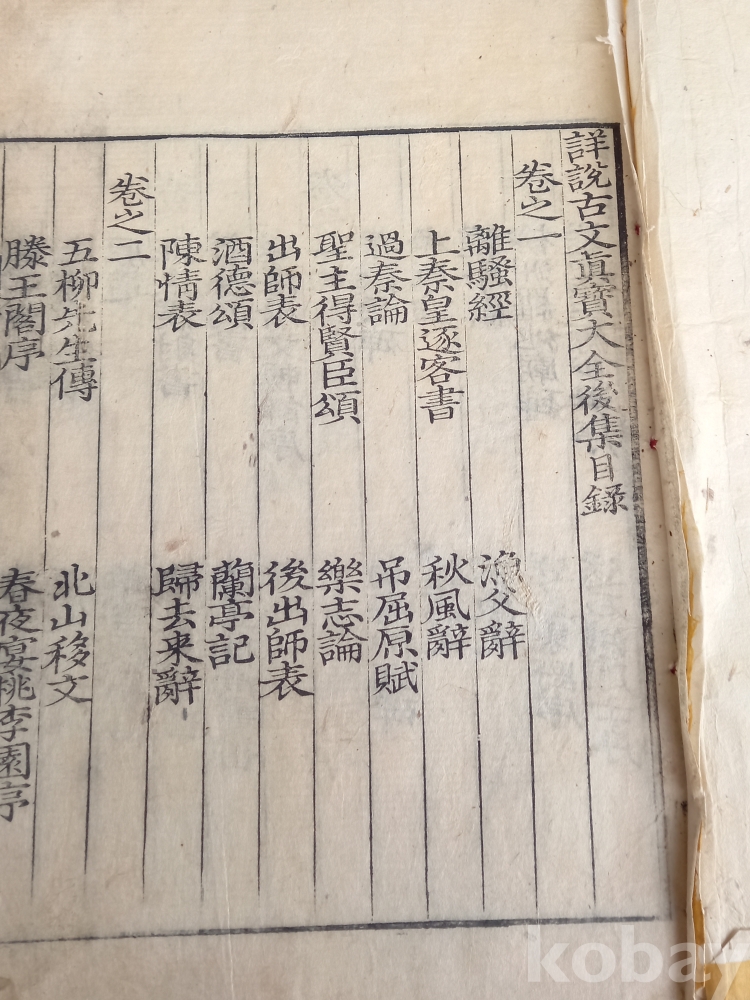 詳說古文眞寶大全後集目錄
卷之一
離騷經 漁父辭
上秦皇逐客書 秋風辭
過秦論 吊屈原賦
聖主得賢臣頌 樂志論
出師表 後出師表
酒德頌 蘭亭記
陳情表 歸去來辭
卷之二
五柳先生傳 北山移文
滕王閣序 春夜宴桃李園序
kobay